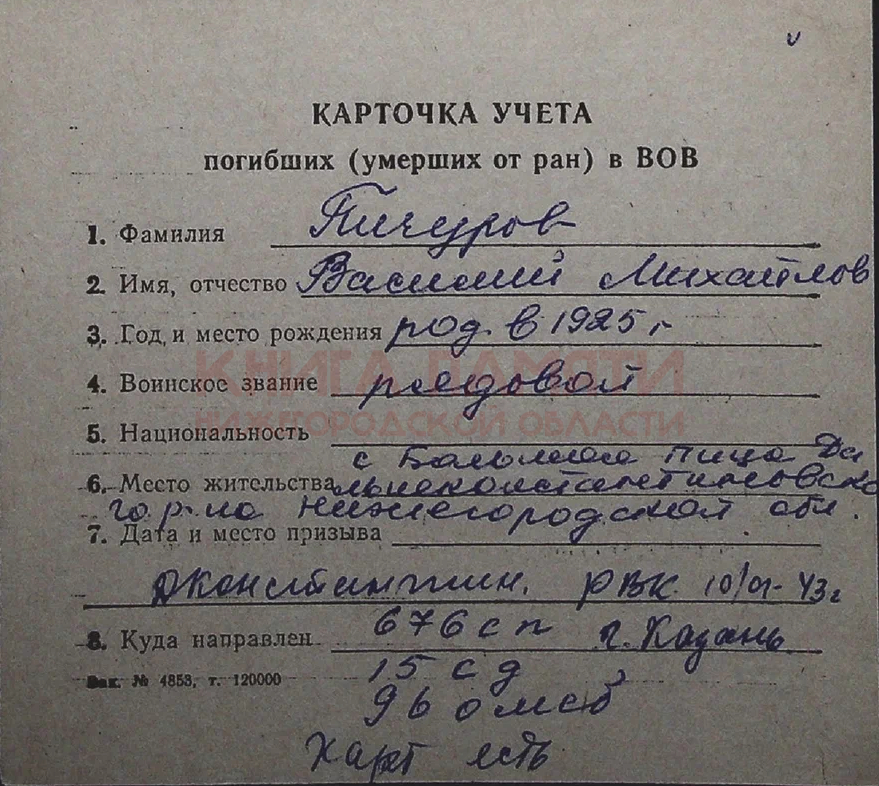 КАРТОЧКА УЧЕТА
погибших (умерших от ран) в ВОВ
1. Фамилия Пичуров
2. Имя, отчество Василий Михайлов
3. Год и место рождения род. в 1925 г
4. Воинское звание рядовой
КНИГА ПАМЯТИ
НИЖЕГОРОДСКОЙ ОБЛАСТИ
5. Национальность
с Большое Пица Да
6. Место жительства льнеконстантиновско
го р-на Нижегородской обл.
7. Дата и место призыва
Дконстантин. РВК 10/01-43г
8. Куда направлен 676 сп г. Казань
Зак. № 4853, т. 120000 15 сд
96 омсб
Карт есть